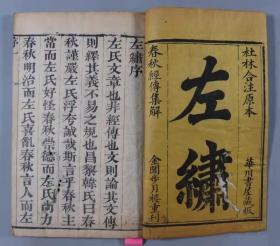 杜林合注原本
左繡
華川書屋藏板
春秋經傳集解
金閶步月樓重刊
左繡序
左氏文章也非經傳也文則論其文傳
則繹其義不易之規也昌黎韓氏曰春
秋謹嚴左氏浮夸誠哉斯言乎春秋主
常而左氏好怪春秋崇德而左氏尚力
春秋明治而左氏喜亂春秋言人而左
序一